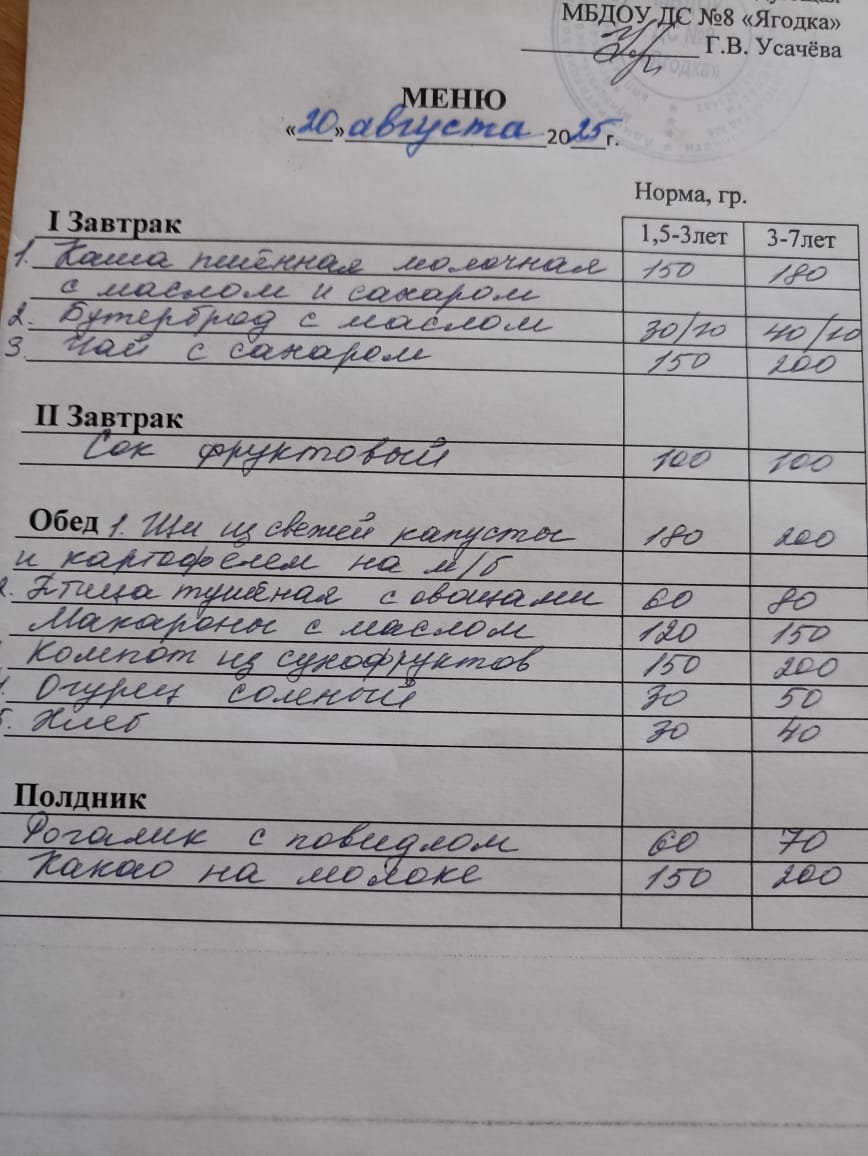 МБДОУ ДС №8 «Ягодка»
Г.В. Усачёва
МЕНЮ
«20» августа 2025 г.
Норма, гр.
I Завтрак 1,5-3лет 3-7лет
1. Каша пшённая молочная 150 180
с маслом и сахаром
2. Бутерброд с маслом 30/10 40/10
3. Чай с сахаром 150 200
II Завтрак
Сок фруктовый 100 100
Обед 1. Щи из свежей капусты 180 200
и картофелем на м/б
2. Птица тушёная с овощами 60 80
Макароны с маслом 120 150
Компот из сухофруктов 150 200
4. Огурец соленый 30 50
5. Хлеб 30 40
Полдник
Рогалик с повидлом 60 70
Какао на молоке 150 200